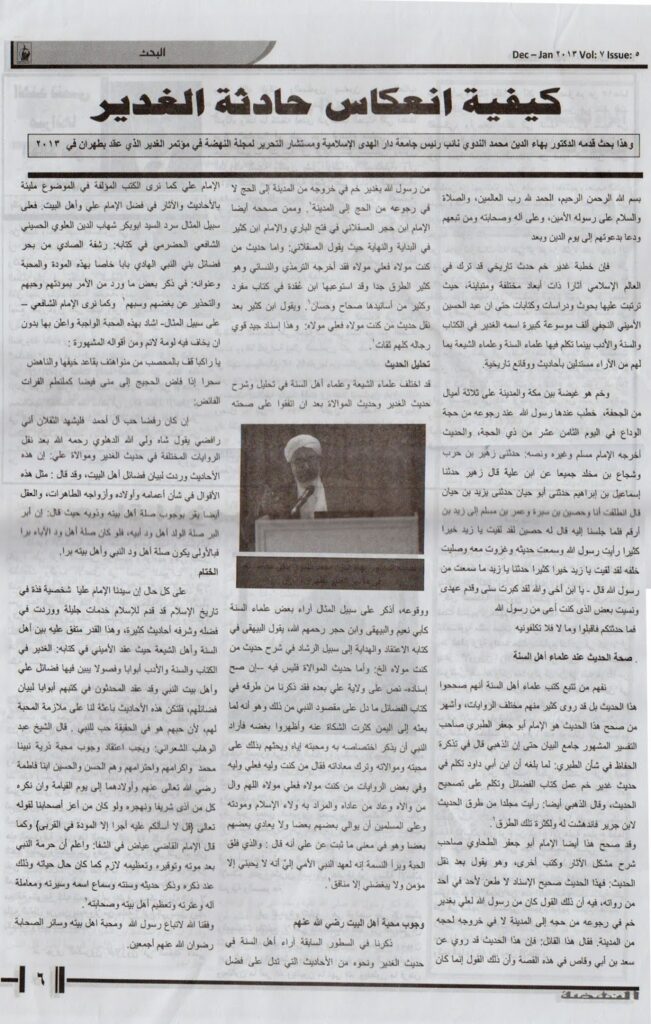 البحث
Dec – Jan ٢٠١٣ Vol: ٧ Issue: ٥
كيفية انعكاس حادثة الغدير
وهذا بحث قدمه الدكتور بهاء الدين محمد الندوي نائب رئيس جامعة دار الهدى الإسلامية ومستشار التحرير لمجلة النهضة في مؤتمر الغدير الذي عقد بطهران في ٢٠١٣
بسم الله الرحمن الرحيم، الحمد لله رب العالمين، والصلاة
والسلام على رسوله الأمين، وعلى آله وصحابته ومن تبعهم
ودعا بدعوتهم إلى يوم الدين وبعد
فإن خطبة غدير خم حدث تاريخي قد ترك في
العالم الإسلامي آثارا ذات أبعاد مختلفة ومتباينة، حيث
ترتبت عليها بحوث ودراسات وكتابات حتى ان عبد الحسين
الأميني النجفي ألف موسوعة كبيرة اسمه الغدير في الكتاب
والسنة والأدب بينما تكلم فيها علماء السنة وعلماء الشيعة بما
لهم من الأراء مستدلين بأحاديث ووقائع تاريخية.
وخم هو غيضة بين مكة والمدينة على ثلاثة أميال
من الجحفة، خطب عندها رسول الله عند رجوعه من حجة
الوداع في اليوم الثامن عشر من ذي الحجة، والحديث
أخرجه الإمام مسلم وغيره ونصه: حدثني زهير بن حرب
وشجاع بن مخلد جميعا عن ابن علية قال زهير حدثنا
إسماعيل بن إبراهيم حدثني أبو حيان حدثني يزيد بن حيان
قال انطلقت أنا وحصين بن سبرة وعمر بن مسلم إلى زيد بن
أرقم فلما جلسنا إليه قال له حصين لقد لقيت يا زيد خيرا
كثيرا رأيت رسول الله وسمعت حديثه وغزوت معه وصليت
خلفه لقد لقيت يا زيد خيرا كثيرا حدثنا يا زيد ما سمعت من
رسول الله قال - يا ابن أخى والله لقد كبرت سنى وقدم عهدى
ونسيت بعض الذى كنت أعى من رسول الله
فما حدثتكم فاقبلوا وما لا فلا تكلفونيه
. صحة الحديث عند علماء أهل السنة
نفهم من تتبع كتب علماء أهل السنة أنهم صححوا
هذا الحديث بل قد روى كثير منهم مختلف الروايات، وأشهر
من صحح هذا الحديث هو الإمام أبو جعفر الطبري صاحب
التفسير المشهور جامع البيان حتى إن الذهبي قال في تذكرة
الحفاظ في شأن الطبري: لما بلغه أن ابن أبي داود تكلم في
حديث غدير خم عمل كتاب الفضائل وتكلم على تصحيح
الحديث، وقال الذهبي أيضا: رأيت مجلدا من طرق الحديث
لابن جرير فاندهشت له ولكثرة تلك الطرق¹.
وقد صحح هذا أيضا الإمام أبو جعفر الطحاوي صاحب
شرح مشكل الآثار وكتب أخرى، وهو يقول بعد نقل
الحديث: فهذا الحديث صحيح الإسناد لا طعن لأحد في أحد
من رواته، فيه أن ذلك القول كان من رسول الله لعلي بغدير
خم في رجوعه من حجه إلى المدينة لا في خروجه لحجه
من المدينة. فقال هذا القائل: فإن هذا الحديث قد روي عن
سعد بن أبي وقاص في هذه القصة وأن ذلك القول إنما كان
من رسول الله بغدير خم في خروجه من المدينة إلى الحج لا
في رجوعه من الحج إلى المدينة². وممن صححه أيضا
الإمام ابن حجر العسقلاني في فتح الباري والإمام ابن كثير
في البداية والنهاية حيث يقول العسقلاني: واما حديث من
كنت مولاه فعلي مولاه فقد أخرجه الترمذي والنسائي وهو
كثير الطرق جدا وقد استوعبها ابن عُقدة في كتاب مفرد
وكثير من أسانيدها صحاح وحسان³. ويقول ابن كثير بعد
نقل حديث من كنت مولاه فعلي مولاه: وهذا إسناد جيد قوي
رجاله كلهم ثقات⁴.
تحليل الحديث
قد اختلف علماء الشيعة وعلماء أهل السنة في تحليل وشرح
حديث الغدير وحديث الموالاة بعد ان اتفقوا على صحته
ووقوعه، أذكر على سبيل المثال أراء بعض علماء السنة
كأبي نعيم والبيهقي وابن حجر رحمهم الله، يقول البيهقي في
كتابه الاعتقاد والهداية إلى سبيل الرشاد في شرح حديث من
كنت مولاه الخ: وأما حديث الموالاة فليس فيه --إن صح
إسناده- نص على ولاية علي بعده فقد ذكرنا من طرقه في
كتاب الفضائل ما دل على مقصود النبي من ذلك وهو أنه لما
بعثه إلى اليمن كثرت الشكاة عنه وأظهروا بغضه فأراد
النبي أن يذكر اختصاصه به ومحبته إياه ويحثهم بذلك على
محبته وموالاته وترك معاداته فقال من كنت وليه فعلي وليه
وفي بعض الروايات من كنت مولاه فعلي مولاه اللهم وال
من والاه وعاد من عاداه والمراد به ولاء الإسلام ومودته
وعلى المسلمين أن يوالي بعضهم بعضا ولا يعادي بعضهم
بعضا وهو في معنى ما ثبت عن علي أنه قال : والذي فلق
الحبة وبرأ النسمة إنه لعهد النبي الأمي إليّ أنه لا يحبني إلا
مؤمن ولا يبغضني إلا منافق⁵.
وجوب محبة أهل البيت رضي الله عنهم
ذكرنا في السطور السابقة أراء أهل السنة في
حديث الغدير ونحوه من الأحاديث التي تدل على فضل
الإمام علي كما نرى الكتب المؤلفة في الموضوع مليئة
بالأحاديث والآثار في فضل الإمام علي وأهل البيت. فعلى
سبيل المثال سرد السيد ابوبكر شهاب الدين العلوي الحسيني
الشافعي الحضرمي في كتابه: رشفة الصادي من بحر
فضائل بني النبي الهادي بابا خاصا بهذه المودة والمحبة
وعنوانه: في ذكر بعض ما ورد من الأمر بمودتهم وحبهم
والتحذير عن بغضهم وسبهم⁶ وكما نرى الإمام الشافعي –
على سبيل المثال- اشاد بهذه المحبة الواجبة واعلن بها بدون
ان يخاف فيه لومة لائم ومن أقواله المشهورة :
يا راكبا قف بالمحصب من منى واهتف بقاعد خيفها والناهض
سحرا إذا فاض الحجيج إلى منى فيضا كملتطم الفرات
الفائض:
إن كان رفضا حب آل أحمد فليشهد الثقلان أني
رافضي يقول شاه ولي الله الدهلوي رحمه الله بعد نقل
الروايات المختلفة في حديث الغدير وموالاة علي: إن هذه
الأحاديث وردت لبيان فضائل أهل البيت، وقد قال : مثل هذه
الأقوال في شأن أعمامه وأولاده وأزواجه الطاهرات، والعقل
أيضا يقر بوجوب صلة أهل بيته وذويه حيث قال: إن أبر
البر صلة الولد أهل ود أبيه، فلو كان صلة أهل ود الأباء برا
فبالأولى يكون صلة أهل ود النبي وأهل بيته برا.
الختام
على كل حال إن سيدنا الإمام عليا شخصية فذة في
تاريخ الإسلام قد قدم للإسلام خدمات جليلة ووردت في
فضله وشرفه أحاديث كثيرة، وهذا القدر متفق عليه بين أهل
السنة وأهل الشيعة حيث عقد الأميني في كتابه: الغدير في
الكتاب والسنة والأدب أبوابا وفصولا يبين فيها فضائل علي
وأهل بيت النبي وقد عقد المحدثون في كتبهم أبوابا لبيان
فضائلهم، فلتكن هذه الأحاديث باعثة لنا على ملازمة المحبة
لهم، لأن حبهم هو في الحقيقة حب للنبي . قال الشيخ عبد
الوهاب الشعراني: ويجب اعتقاد وجوب محبة ذرية نبينا
محمد واكرامهم واحترامهم وهم الحسن والحسين ابنا فاطمة
رضي الله تعالى عنهم وأولادهما إلى يوم القيامة وان نكره
كل من أذى شريفا ونهجره ولو كان من أعز أصحابنا لقوله
تعالى {قل لا أسألكم عليه أجرا إلا المودة في القربى} وكما
قال الإمام القاضي عياض في الشفا: واعلم أن حرمة النبي
بعد موته وتوقيره وتعظيمه لازم كما كان حال حياته وذلك
عند ذكره وذكر حديثه وسنته وسماع اسمه وسيرته ومعاملة
آله وعترته وتعظيم أهل بيته وصحابته⁸.
وفقنا الله لاتباع رسول الله ومحبة اهل بيته وسائر الصحابة
رضوان الله عنهم أجمعين.
النهضة
٦